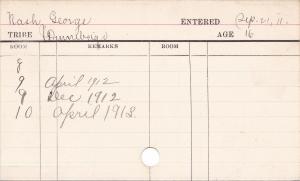 Nash, George ENTERED Sep. 21, 11.
TRIBE (Winnebago) AGE 16
ROOM REMARKS ROOM
8
9 April 1912
9 Dec 1912
10 April 1913.